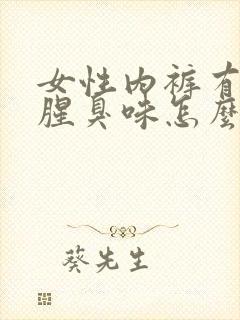 女性内裤有
腥臭味怎麼
葵先生